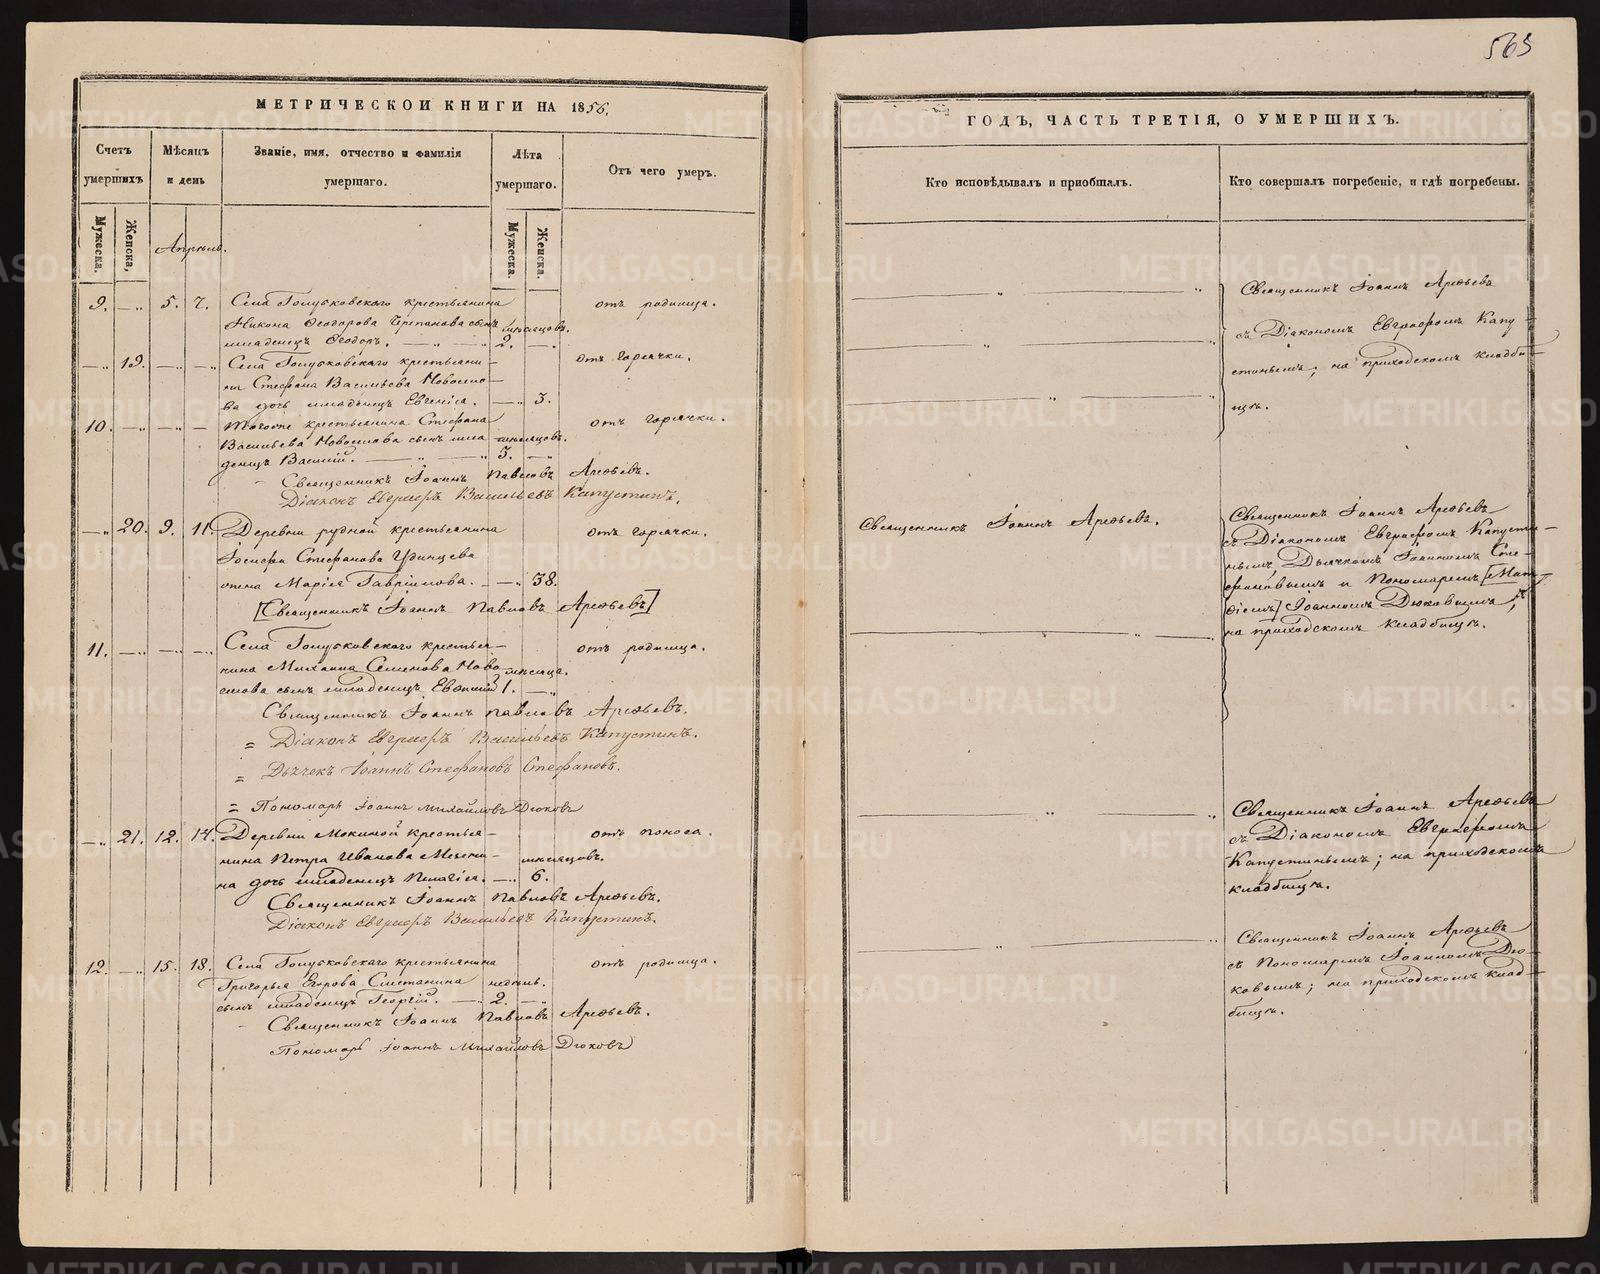 565
МЕТРИЧЕСКОЙ КНИГИ НА 1856.
Счетъ умершихъ
Мѣсяцъ и день
Званіе, имя, отчество и фамилія умершаго.
Лѣта умершаго.
Отъ чего умеръ.
Мужеска.
Женска,
Мужеска.
Женска.
Апрѣль.
9. — „ 5. 7. Села Голубковскаго крестьянина отъ родимца.
Никона Ѳеодорова Черепанова сынъ мѣсяцовъ.
младенецъ Ѳеодоръ. — „ — „ 2. — „
— „ 19. — „ — „ Села Голубковскаго крестьяни- отъ горячки.
на Стефана Васильева Новосело-
ва дочь младенецъ Евгенія. — „ 3.
10. — „ — „ — Тогоже крестьянина Стефана отъ горячки.
Васильева Новоселова сынъ мла- мѣсяцовъ.
денецъ Василій. — „ — „ 5. — „
Священникъ Іоаннъ Павловъ Арефьевъ.
Діаконъ Евграфъ Васильевъ Капустинъ.
— „ 20. 9. 11. Деревни рудной крестьянина отъ горячки.
Іосифа Стефанова Удинцева
жена Марія Гавріилова. — — „ 38.
[Священникъ Іоаннъ Павловъ Арефьевъ]
11. — „ — „ — „ Села Голубковскаго крестья- отъ родимца.
нина Михаила Семенова Ново- мѣсяца.
селова сынъ младенецъ Евѳимій 1. — „
Священникъ Іоаннъ Павловъ Арефьевъ.
= Діаконъ Евграфъ Васильевъ Капустинъ.
= Дьячекъ Іоаннъ Стефановъ Стефановъ.
= Пономарь Іоаннъ Михайловъ Дюковъ
— „ 21. 12. 14. Деревни Мокиной крестья- отъ поноса.
нина Петра Иванова Мезени- мѣсяцовъ.
на дочь младенецъ Пелагія. — „ 6.
Священникъ Іоаннъ Павловъ Арефьевъ.
Діаконъ Евграфъ Васильевъ Капустинъ.
12. — „ 15. 18. Села Голубковскаго крестьянина отъ родимца.
Григорья Егорова Сметанина недѣль.
сынъ младенецъ Георгій. — „ 2. — „
Священникъ Іоаннъ Павловъ Арефьевъ.
Пономарь Іоаннъ Михайловъ Дюковъ
ГОДЪ, ЧАСТЬ ТРЕТІЯ, О УМЕРШИХЪ.
Кто исповѣдывалъ и пріобщалъ.
Кто совершалъ погребеніе, и гдѣ погребены.
Священникъ Іоаннъ Арефьевъ
съ Діакономъ Евграфомъ Капу-
стинымъ; на приходскомъ кладби-
щѣ.
Священникъ Іоаннъ Арефьевъ.
Священникъ Іоаннъ Арефьевъ
съ Діакономъ Евграфомъ Капусти-
нымъ, Дьячкомъ Іоанномъ Сте-
фановымъ и Пономаремъ
Іоанномъ Дюковымъ;
на приходскомъ кладбищѣ.
Священникъ Іоаннъ Арефьевъ
съ Діакономъ Евграфомъ
Капустинымъ; на приходскомъ
кладбищѣ.
Священникъ Іоаннъ Арефьевъ
съ Пономаремъ Іоанномъ Дю-
ковымъ; на приходскомъ клад-
бищѣ.
METRIKI.GASO-URAL.RU